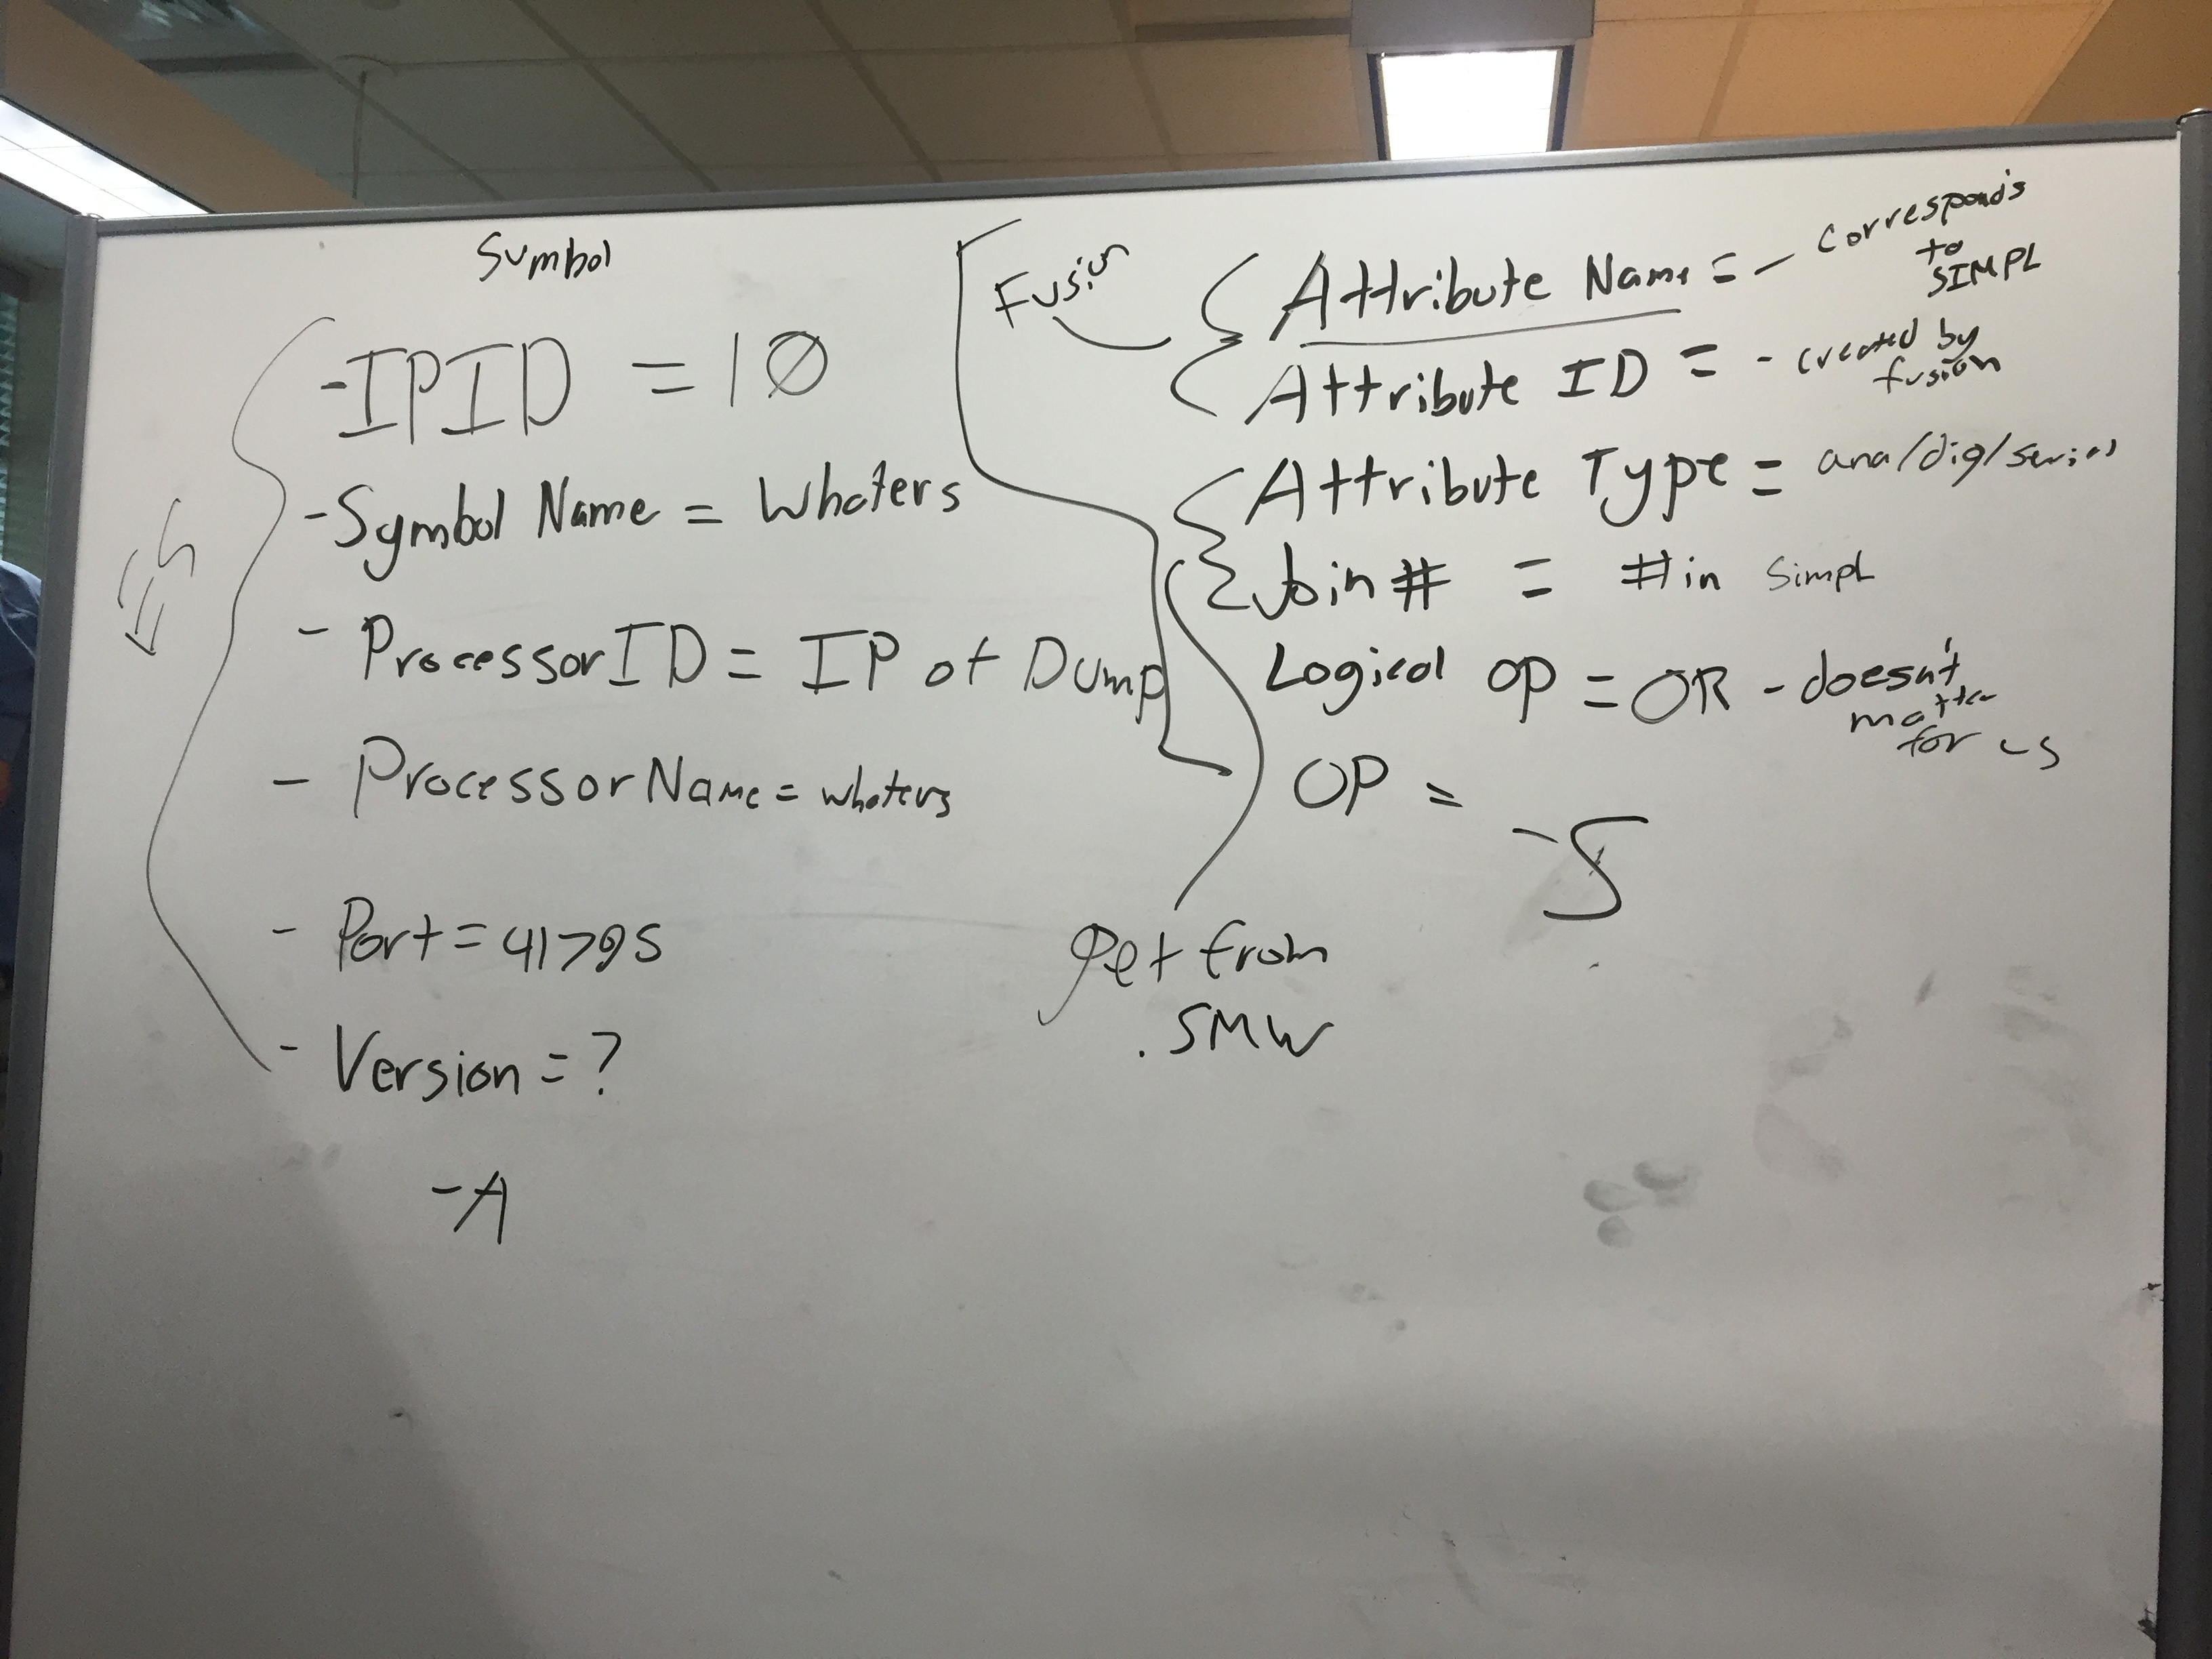 Symbol
-IPID = 10
-Symbol Name = Whaters
- ProcessorID = IP of Dump
- ProcessorName = whaters
- Port = 41795
- Version = ?
-A
Fusion
Attribute Name = - corresponds
to
SIMPL
Attribute ID = - created by
fusion
Attribute Type = ana/dig/serial
Join # = # in Simpl
Logical OP = OR - doesn't
matter
for us
OP =
get from
.SMW